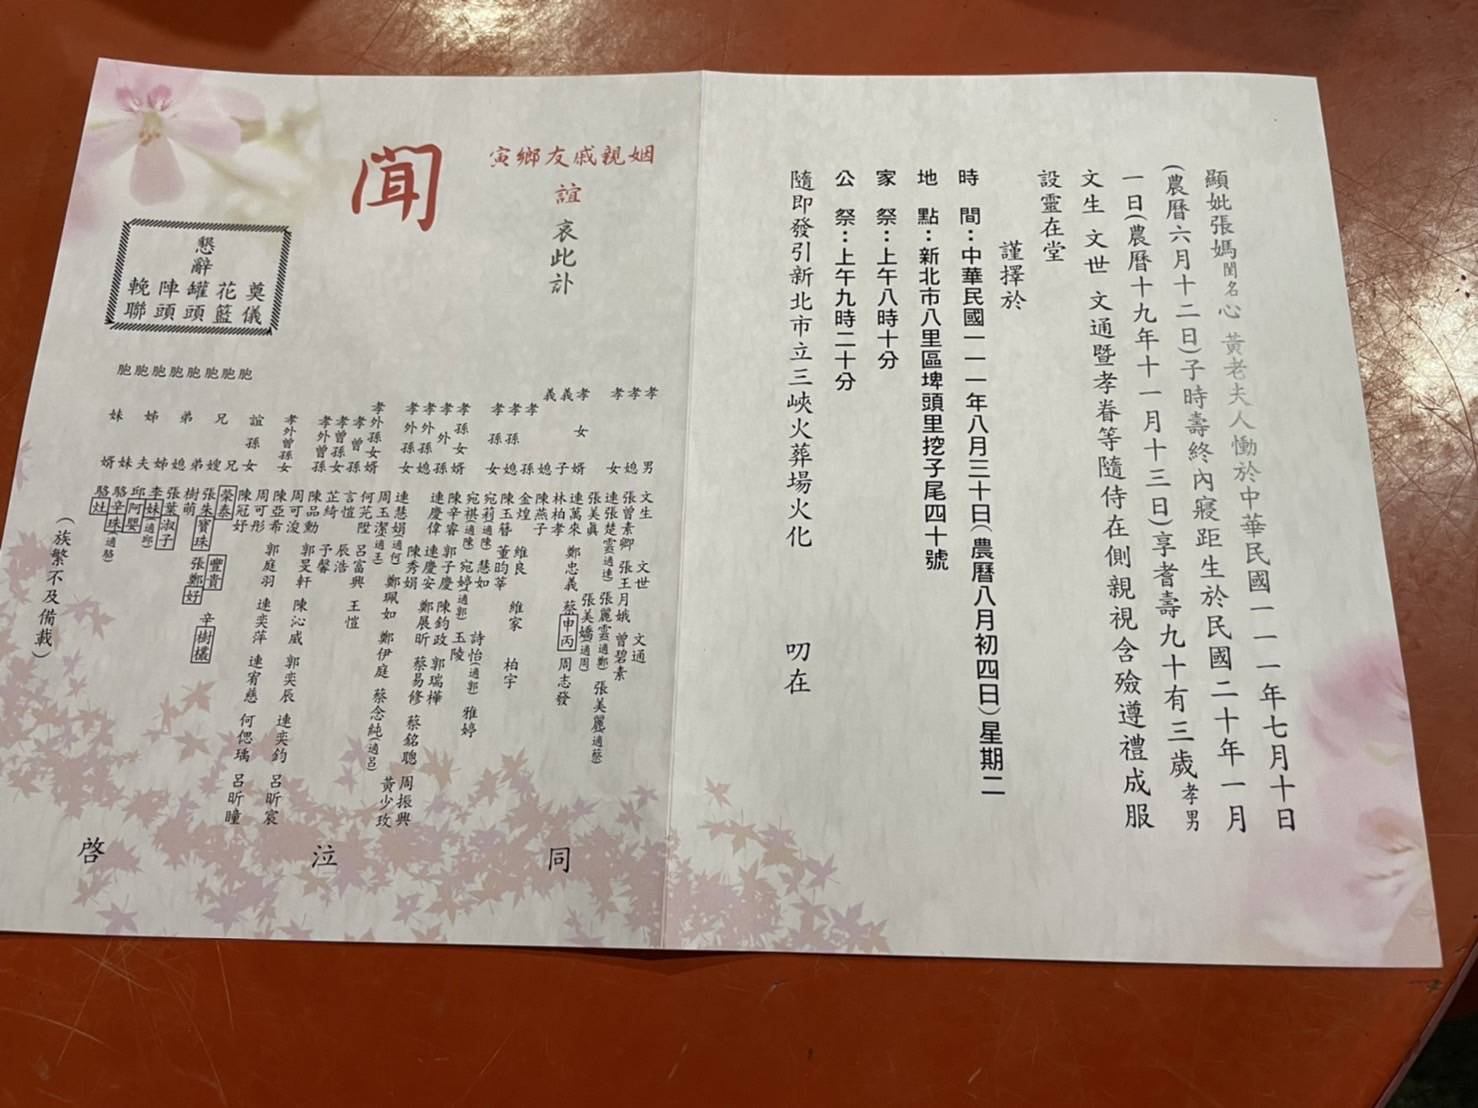 顯妣張媽閨名心 黃老夫人慟於中華民國一一一年七月十日
(農曆六月十二日)子時壽終內寢距生於民國二十年一月
一日(農曆十九年十一月十三日)享耆壽九十有三歲孝男
文生 文世 文通暨孝眷等隨侍在側親視含殮遵禮成服
設靈在堂
謹擇於
時 間:中華民國一一一年八月三十日(農曆八月初四日)星期二
地 點:新北市八里區埤頭里挖子尾四十號
家 祭:上午八時十分
公 祭:上午九時二十分
隨即發引新北市立三峽火葬場火化 叨在
姻親戚友鄉寅
誼
哀此訃
聞
懇辭
奠儀
花籃
罐頭
陣頭
輓聯
孝男 文生 文世 文通
孝媳 張曾素卿 張王月娥 曾碧素
孝女 連張楚雲(適連) 張麗雲(適鄭) 張美麗(適蔡)
張美眞 張美嬌(適周)
孝女婿 連萬來 鄭忠義 蔡申丙 周志發
義子 林柏孝
義媳 陳燕子
孝孫 金煌 維良 維家 柏宇
孝孫媳 陳玉簪 董昀莘
孝孫女 宛莉(適陳) 慧如 詩怡(適郭) 雅婷
宛祺(適陳) 宛婷(適郭) 玉陵
孝孫女婿 陳辛睿 郭子慶 陳鈞政 郭瑞樺
孝外孫 連慶偉 連慶安 鄭展昕 蔡易修 蔡銘聰 周振興
孝外孫媳 陳秀娟 黃少玫
孝外孫女 連慧娟(適何) 鄭珮如 鄭伊庭 蔡念純(適呂)
周玉潔(適王)
孝外孫女婿 何芫陞 呂富興 王愷
孝曾孫 言愷 辰浩
孝曾孫女 芷綺 予馨
孝外曾孫 陳品勳 郭旻軒 陳沁威 郭奕辰 連奕鈞 呂昕宸
周可浚
孝外曾孫女 陳亞希 郭庭羽 連奕萍 連宥慈 何偲瑀 呂昕瞳
周可彤
誼孫女 陳冠妤
胞兄 榮泰 豐貴
胞兄嫂 張朱寶珠 張鄭好
胞弟 樹萌 辛樹欉
胞弟媳 張葉淑子
胞姊 李妹(適邱)
胞姊夫 邱阿嬰
胞妹 駱辛珠(適駱)
胞妹婿 駱灶
(族繁不及備載)
同 泣 啓